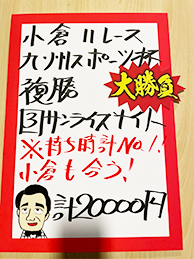 小倉11レース
九州スポーツ杯
複勝
大勝負
③サンライズナイト
※持ち時計No.1!
小倉も合う!
計20000円